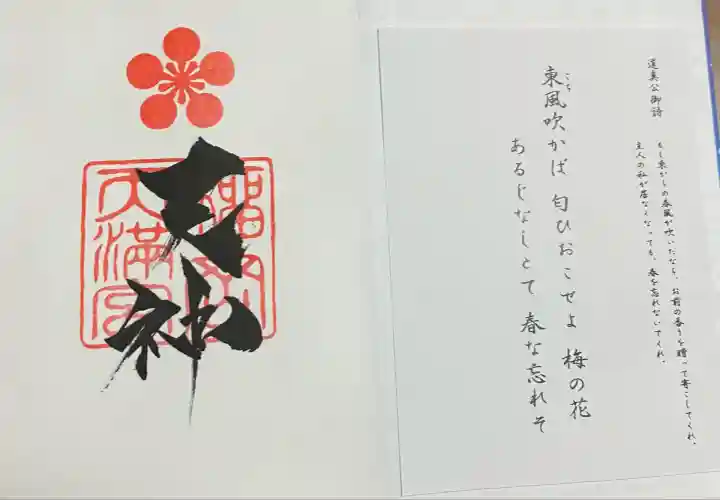 道真公御詩
もし東からの春風が吹いたなら、お前の香りを贈って寄こしてくれ。
主人の私が居なくなっても、春を忘れないでくれ。
こち
東風吹かば 匂ひおこせよ 梅の花
あるじなしとて 春な忘れそ
天神
天満宮